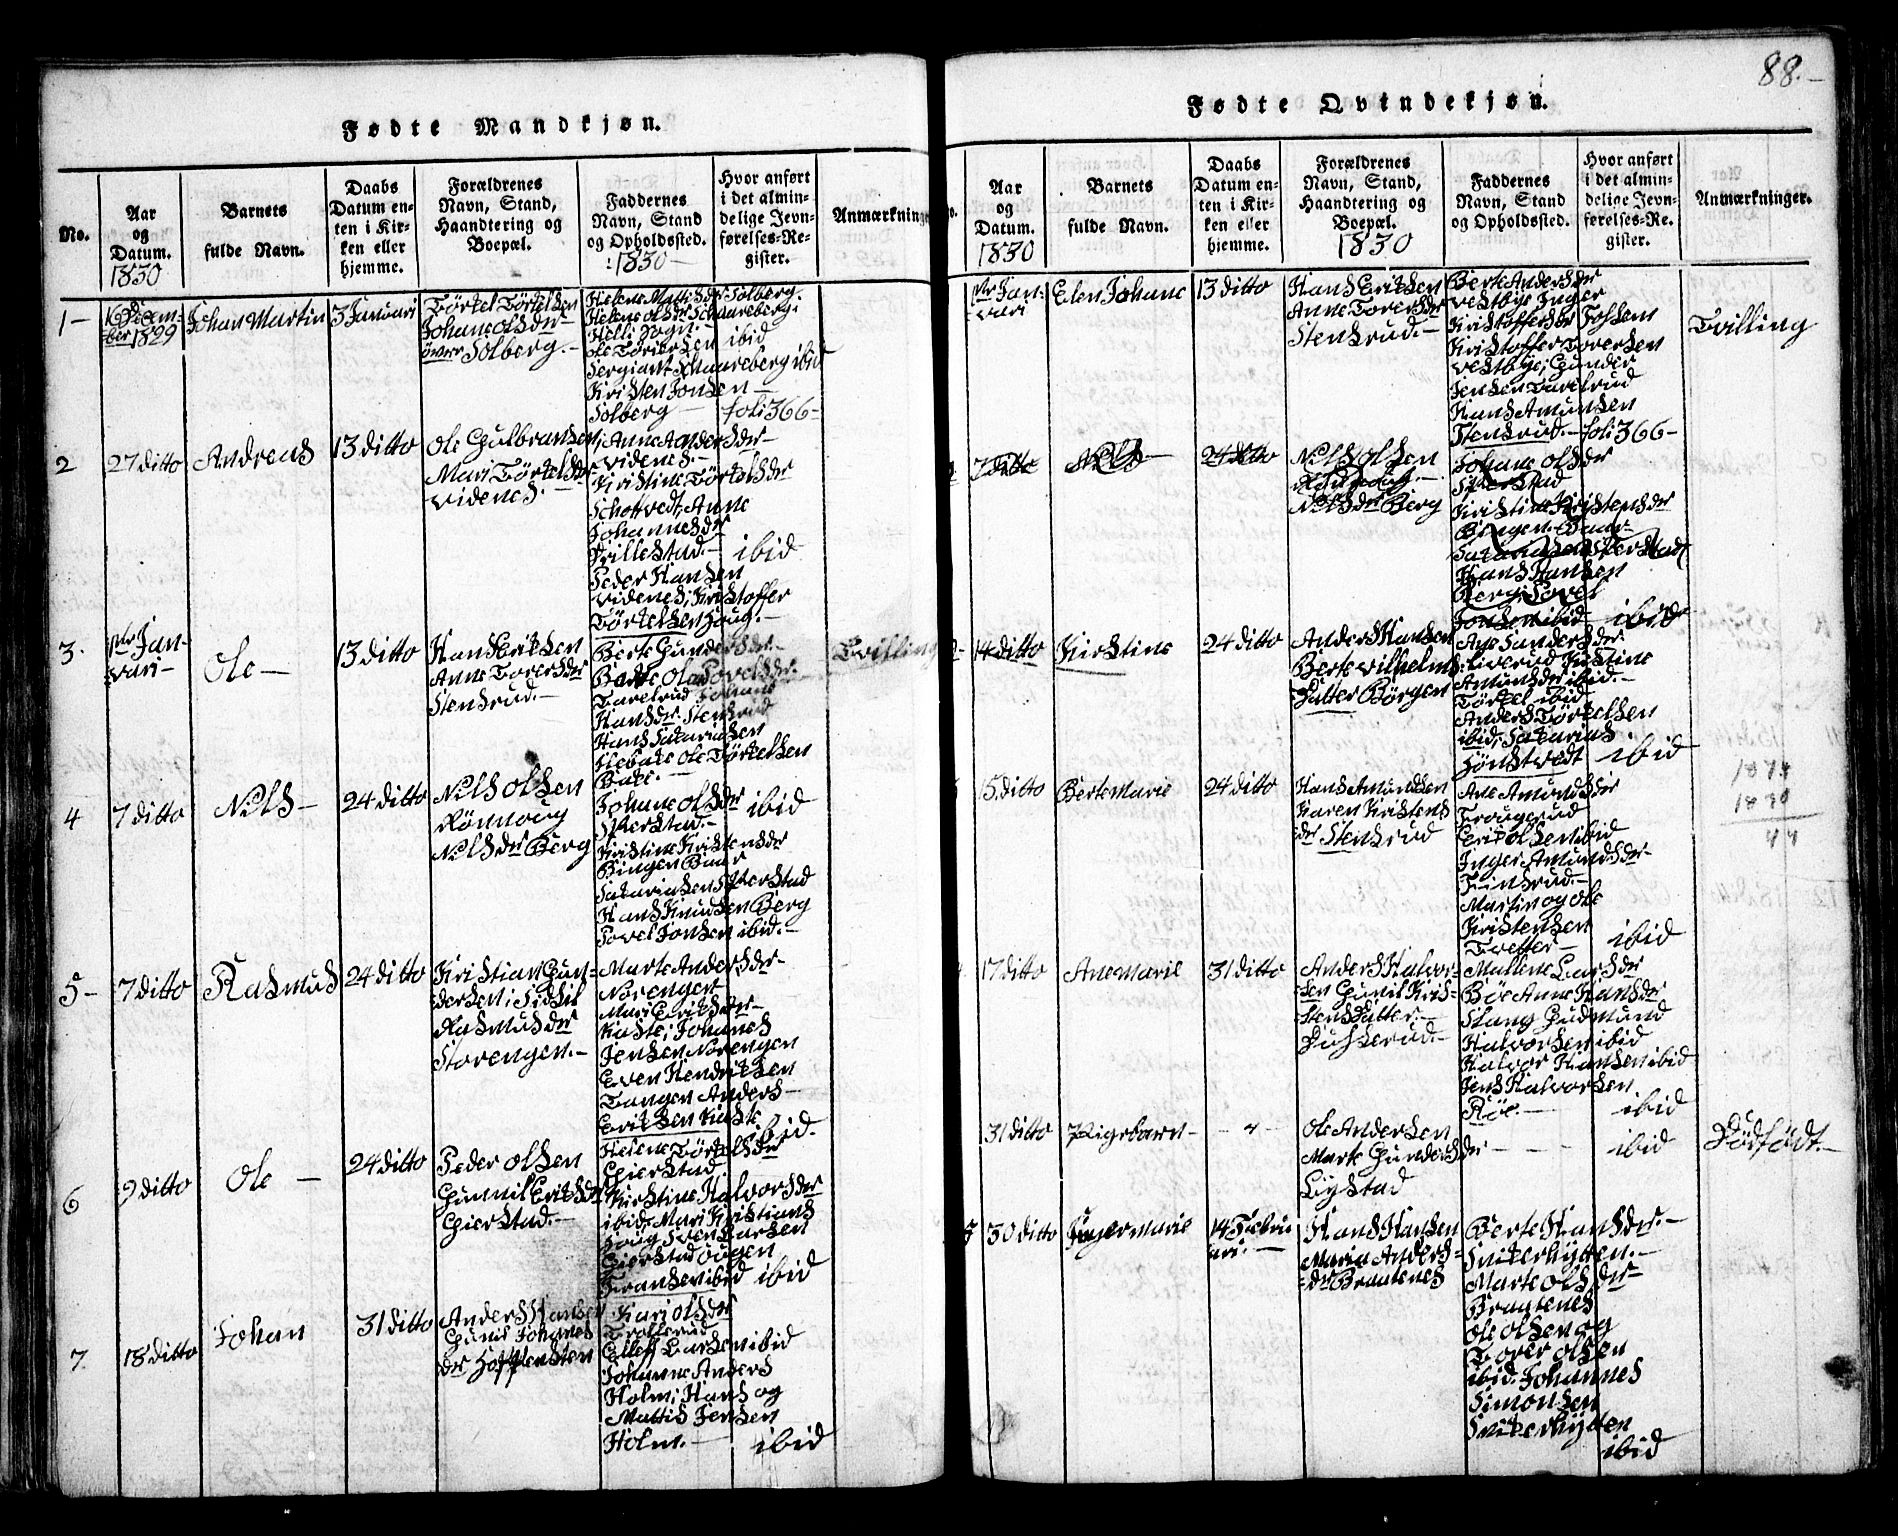 88.-
Fødte Mandkjøn.
No.
Aar
og
Datum.
1830
Barnets
fulde Navn.
Daabs
Datum en-
ten i Kir-
ken eller
hjemme.
Forældrenes
Navn, Stand,
Haandtering og
Boepæl.
Faddernes
Navn, Stand
og Opholdssted.
1830
Hvor anført
i det almin-
delige Jevn-
førelses-Re-
gister.
Anmærkninger
1-
16 Decem-
ber 1829
Johan Martin
3 Januari
Törkel Törkelsen
Johane olsdr
övre Solberg.-
Helene Mattisdr Solberg.
Helene olsdr Schaareberg.
Helli Sogn.- ibid
ole Torersen
Sergiant Schaareberg ibid
Kristen Jonsen-
Solberg- foli 366-
2
27 ditto
Andreas
13 ditto
Ole Gulbransen
Mari Törkelsdr
videnes.
Anne Andersdr-
videnes.-
Kristine Törkelsdr
Schottvedt, Anne
Johannesdr
Prillestad.- ibid
Peder Hansen
videnes; Kristoffer
Törkelsen Houg.-
3.
1ste Jan-
vari-
Ole-
13 ditto
Hans Eriksen
Anne Toresdr
Stensrud.-
Berte Gundersdr.-
Berte Olea Povelsdr
Tarelrud Johane
Hansdr. Stensrud
Hans Sakariasen
Ole Törkelsen
Bake.-
Tvilling
4
7 ditto
Nils-
24 ditto
Nils olsen
Rönnoug
Nilsdr Berg
Johane olsdr
Sperstad.- ibid
Kristine Kristensdr
Bingen
Sakariasen Sperstad
Hans Knudsen Berg
Povel Jonsen ibid.-
5-
7 ditto
Rasmus
24 ditto
Kristian Gun-
dersen; Sidsil
Rasmusdr
Storengen.-
Marte Andersdr-
Norengen
Mari Eriksdr-
Kaste; Johanes
Jensen Norengen
Even Hendriksen
Tangen Anders-
Eriksen Kaste
ibid.
6
9 ditto
Ole-
24 ditto
Peder olsen
Gunnil Eriksdr
Gierstad.-
Helene Törkelsdr
Gierstad
Kirstine Halvorsdr
ibid, Mari Kristians
Houg Sven Larsen
Gierstad
Fransen ibid ibid
7.
18 ditto
Johan
31 ditto
Anders Hansen
Gunil Johanes
dr Hoffensten
Kari olsdr
Trollerud
Elleff Larsen ibid
Johanne Anders
Holm; Hans og
Mattis Jensen
Holm.- ibid
Fødte Qvindekjøn.
No.
Aar
og
Datum.
1830
Barnets
fulde Navn.
Daabs
Datum en-
ten i Kir-
ken eller
hjemme.
Forældrenes
Navn, Stand,
Haandtering og
Boepæl.
1830
Faddernes
Navn, Stand
og Opholdssted.
Hvor anført
i det almin-
delige Jevn-
førelses-Re-
gister.
Anmærkninger.
1ste Jan-
vari
Elen Johane
13 ditto
Hans Eriksen
Anne Toresdr
Stensrud.-
Berte Andersdr
vestbye Inger
Kristoffersdr Fossen
Kristoffer Toresen
vestbye; Gunder
Jensen Tarelrud
Hans Amunsen
Stensrud.- foli 366-
Tvilling
7 ditto
Nils
24 ditto
Nils olsen
Rönnoug.-
Nilsdr Berg
Johane olsdr
Sperstad
Kristine Kristensdr
Bingen
Sakariasen Sperstad
Hans Hansen
Berg; Povel
Jonsen ibid ibid
14 ditto
Kirstine
24 ditto
Anders Hansen
Berte vilhelms
Datter Börgen
Ane Sandersdr
Kirstine
Amunsdr ibid.-
Törkel ibid
Anders Törkelsen
ibid, Sakarias
Hönstvedt ibid
15 ditto
Berte Marie
24 ditto
Hans Amundsen
Karen Kristens
dr Stensrud
Ane Amundsdr
Trougerud
Erik olsen ibid
Inger Amundsdr-
Finsrud.-
Martin og ole
Kristensen
Tveffer- ibid
1874
1830
44
17 ditto
Ane Marie
31 ditto
Anders Halvor-
sen Gunil Kris-
tens Datter.-
Duskerud.-
Mallene Larsdr
Böe Anne Hansdr
Stang Gudmund
Halvorsen ibid
Halvor Hansen ibid
Jens Halvorsen
Röe.- ibid
31 ditto
Pigebarn-
Ole Andersen
Marte Gundersdr
Lystad
ibid
Dödfödt.-
5
30 ditto
Inger Marie
14 Febru
ari.-
Hans Hansen
Maria Anders-
dr Brautenes
Berte Hansdr.-
Snikerhytten.-
Marte olsdr-
Brautenes
ole olsen og
Torer olsen
ibid. Johannes
Simonsen
Snikerhytten
ibid